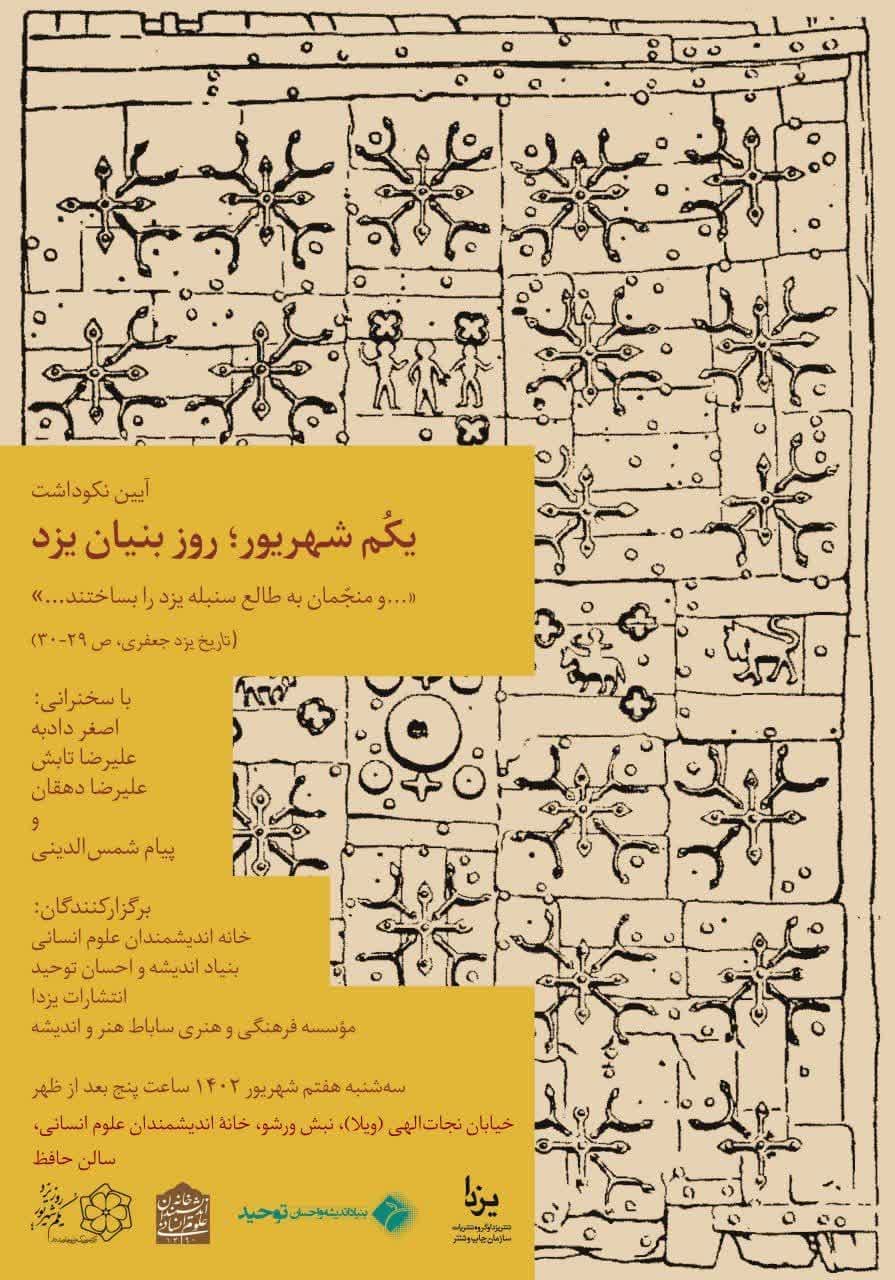 آیین نکوداشت
یکُم شهریور؛ روز بنیان یزد
«...و منجّمان به طالع سنبله یزد را بساختند...»
(تاریخ یزد جعفری، ص ۲۹-۳۰)
با سخنرانی:
اصغر دادبه
علیرضا تابش
علیرضا دهقان
و
پیام شمس‌الدینی
برگزارکنندگان:
خانه اندیشمندان علوم انسانی
بنیاد اندیشه و احسان توحید
انتشارات یزدا
مؤسسه فرهنگی و هنری ساباط هنر و اندیشه
سه‌شنبه هفتم شهریور ۱۴۰۲ ساعت پنج بعد از ظهر
خیابان نجات‌الهی (ویلا)، نبش ورشو، خانهٔ اندیشمندان علوم انسانی،
سالن حافظ
روز یزد
یکم شهریور
خانه اندیشمندان علوم انسانی
۱۳۹۰
بنیاد اندیشه و احسان توحید
یزدا
نشر یزدا و گروه نشریات
سازمان چاپ و نشر